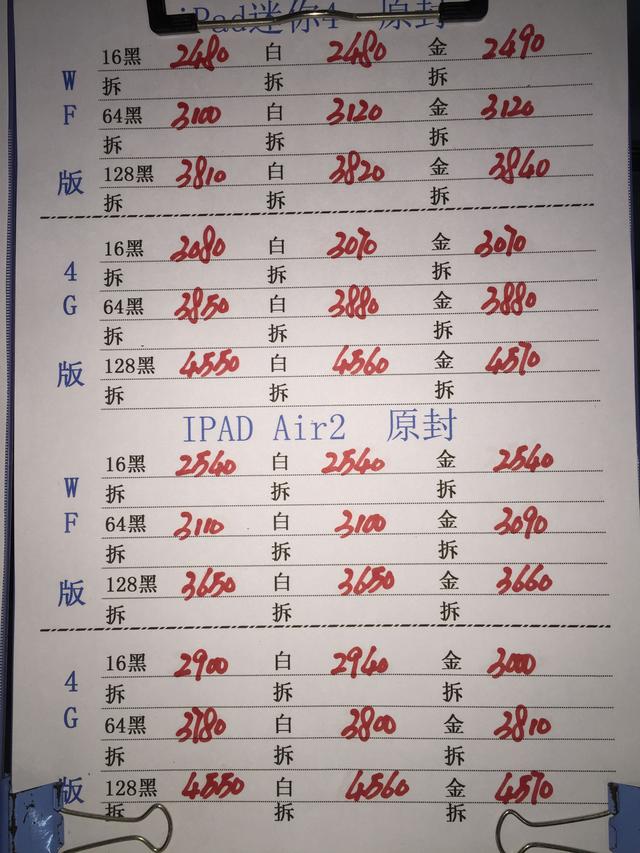 iPad迷你4 原封
16黑 2480 白 2480 金 2490
拆 拆 拆
W
64黑 3100 白 3120 金 3120
F
拆 拆 拆
128黑 3810 白 3820 金 3840
版
拆 拆 拆
16黑 3080 白 3070 金 3070
4
拆 拆 拆
G
64黑 3850 白 3880 金 3880
拆 拆 拆
版
128黑 4550 白 4560 金 4570
拆 拆 拆
IPAD Air2 原封
16黑 2540 白 2540 金 2540
W
拆 拆 拆
F
64黑 3110 白 3100 金 3090
拆 拆 拆
版
128黑 3650 白 3650 金 3660
拆 拆 拆
16黑 2900 白 2940 金 3000
4
拆 拆 拆
G
64黑 3780 白 3800 金 3810
拆 拆 拆
版
128黑 4550 白 4560 金 4570
拆 拆 拆